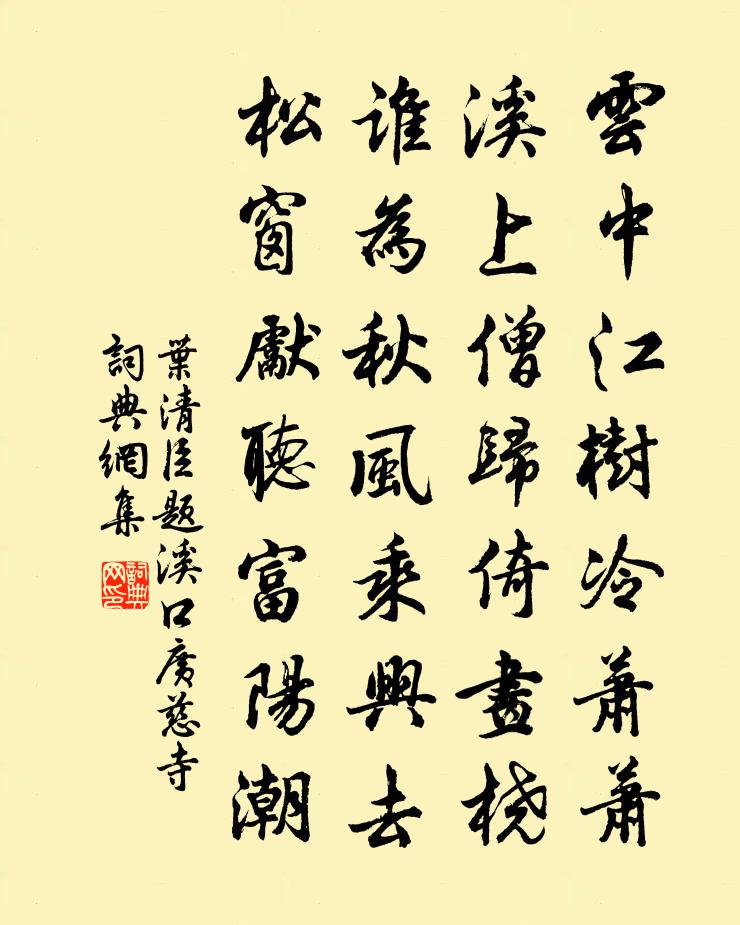 雲中江樹冷蕭蕭
溪上僧歸倚畫橈
誰為秋風乘興去
松窗獻聽富陽潮
葉清臣題溪口廣慈寺
詞典網集
詞典网印